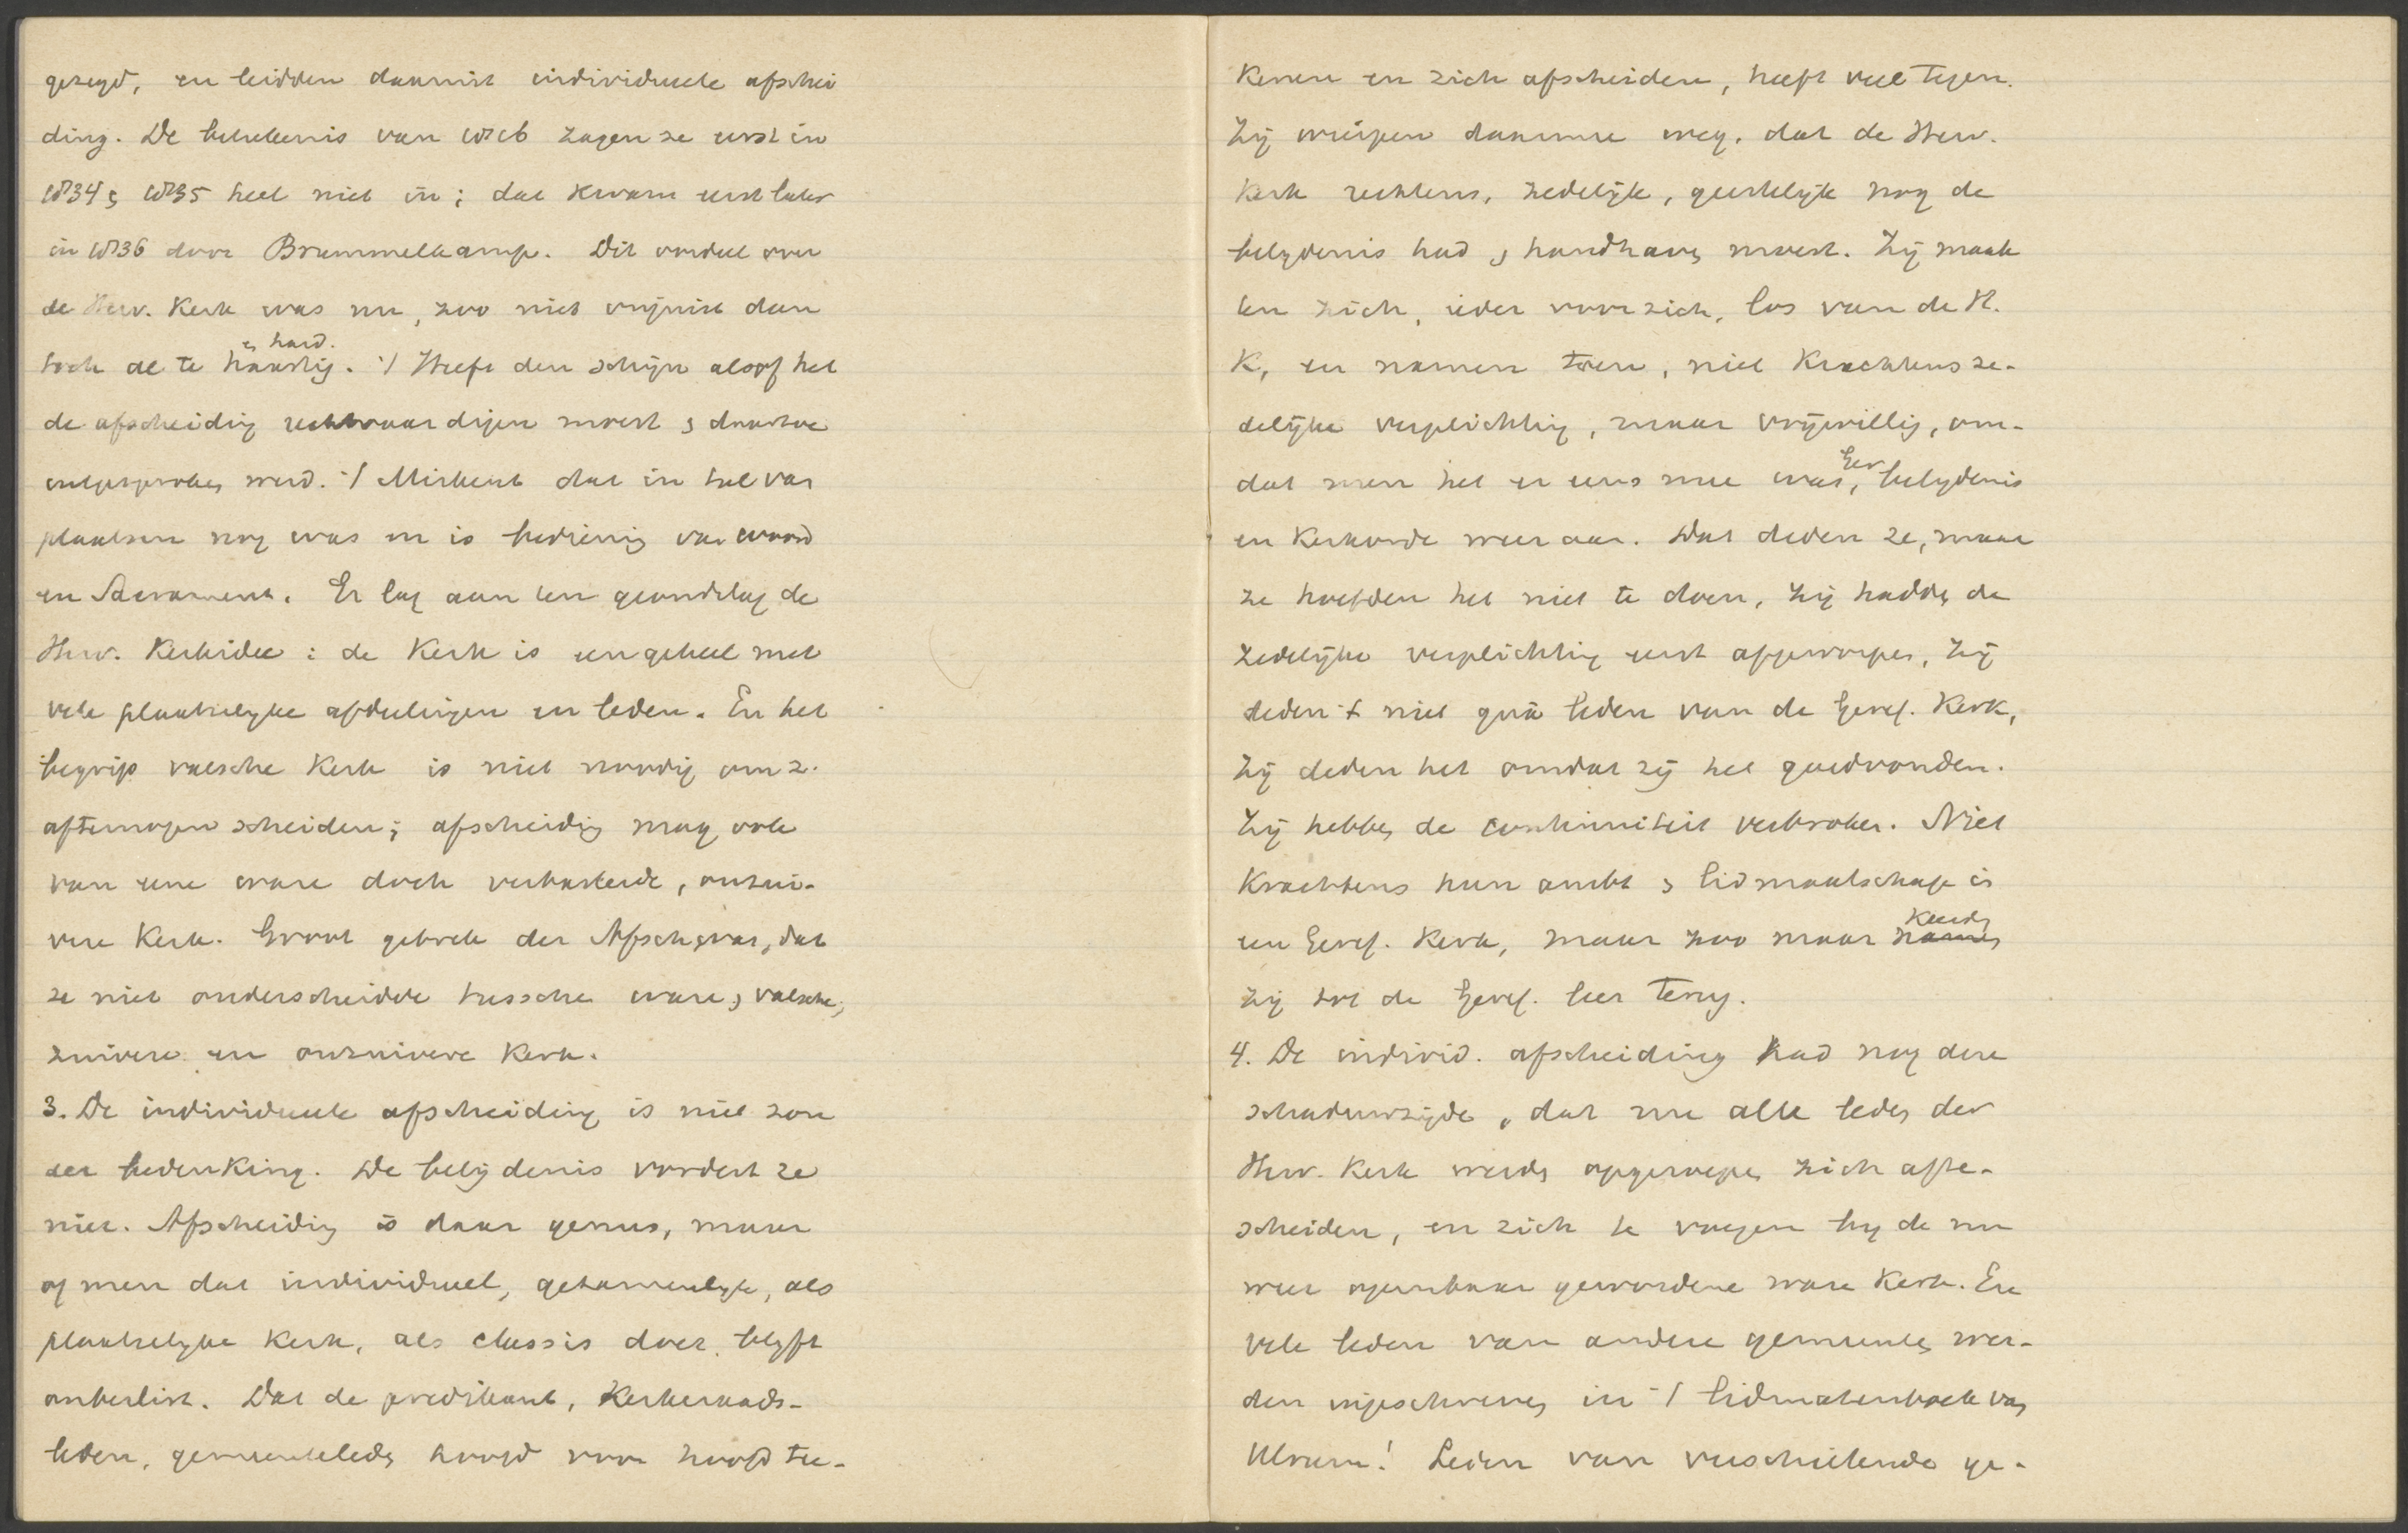 gezegd, en leidden daaruit individueele afschei
ding. De beteekenis van 1816 zagen ze eerst in
1834 & 1835 heel niet in; dat kwam eerst later
in 1836 door Brummelkamp. Dit oordeel over
de Herv. Kerk was nu, zoo niet onjuist dan
& hard.
toch al te haastig. 't Heeft den schijn alsof het
de afscheiding rechtvaardigen moest & daartoe
uitgesproken werd. 't Miskent dat in tal van
plaatsen nog was en is bediening van woord
en Sacrament. Er lag aan ten grondslag de
Herv. Kerkidee: de Kerk is een geheel met
vele plaatselyke afdeelingen en leden. En het
begrip valsche Kerk is niet noodig om z.
af te mogen scheiden; afscheiding mag ook
van eene ware doch verbasterde, onzui-
vere Kerk. Groot gebrek der Afsch. was, dat
ze niet onderscheidde tussche ware & valsche,
zuivere en onzuivere Kerk.
3. De individueele afscheiding is niet zon
der bedenking. De belijdenis vordert ze
niet. Afscheiding is daar genus, maar
of men dat individueel, gezamenlyk, als
plaatselyke Kerk, als classis doet, blyft
onbeslist. Dat de predikant, Kerkeraads-
leden, gemeenteleden hoofd voor hoofd tee-
kenen en zich afscheiden, heeft veel tegen.
Zij wierpen daarmee weg, dat de Herv.
Kerk rechtens, zedelijk, geestelijk nog de
belydenis had & handhaven moest. Zij maak
ten zich, ieder voor zich, los van de H.
K, en namen toen, niet krachtens ze-
delijke verplichting, maar vrijwillig, om-
dat men het er eens mee was, Ger. belydenis
en Kerkorde weer aan. Dat deden ze, maar
ze hoefden het niet te doen, zij hadden de
zedelijke verplichting eerst afgeworpen, zij
deden 't niet quâ leden van de Geref. Kerk,
zij deden het omdat zij het goedvonden.
Zij hebben de continuiteit verbroken. Niet
krachtens hun ambt & lidmaatschap in
een Geref. Kerk, maar zoo maar namen keerden
zij tot de Geref. leer terug.
4. De individ. afscheiding had nog deze
schaduwzijde, dat nu alle leden der
Herv. Kerk werden opgeroepen zich af te-
scheiden, en zich te voegen by de nu
weer openbaar gewordene ware Kerk. En
vele leden van andere gemeenten wer-
den ingeschreven in 't lidmatenboek van
Ulrum! Leden van verschillende ge-